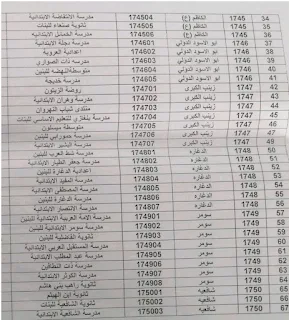 34 1745 الكاظم (ع) 174504 مدرسة الانتفاضة الابتدائية
35 1745 الكاظم (ع) 174505 ثانوية صنعاء للبنات
36 1745 الكاظم (ع) 174506 مدرسة الخمائل الابتدائية
37 1746 ابو الاسود الدؤلي 174601 مدرسة دجلة الابتدائية
38 1746 ابو الاسود الدؤلي 174602 اعدادية العروبة
39 1746 ابو الاسود الدؤلي 174603 مدرسة ذات الصواري
40 1746 ابو الاسود الدؤلي 174604 متوسطة النهضة للبنين
41 1746 ابو الاسود الدؤلي 174605 مدرسة خديجة
42 1747 زينب الكبرى 174701 روضة الزيتون
43 1747 زينب الكبرى 174702 مدرسة وهران الابتدائية
44 1747 زينب الكبرى 174703 منتدى شباب النهروان
45 1747 زينب الكبرى 174704 مدرسة بنغازي للتعليم الاساسي للبنات
46 1747 زينب الكبرى 174705 متوسطة ميسلون
47 1747 زينب الكبرى 174706 مدرسة حمورابي للبنين
49 1747 زينب الكبرى 174707 مدرسة البشير الابتدائية
50 1748 الدغارة 174801 مدرسة شط العرب للبنين
51 1748 الدغارة 174802 مدرسة جعفر الطيار الابتدائية
52 1748 الدغارة 174803 اعدادية الدغارة للبنين
53 1748 الدغارة 174804 مدرسة المفيد الابتدائية
54 1748 الدغارة 174805 مدرسة المصطفى الابتدائية
55 1748 الدغارة 174806 مدرسة الدغارة للبنين
56 1748 الدغارة 174807 مدرسة الانتصار الابتدائية
57 1749 سومر 174901 مدرسة الامة العربية الابتدائية للبنين
58 1749 سومر 174902 مدرسة سومر الابتدائية للبنين
59 1749 سومر 174903 ثانوية الفاضلية للبنين
60 1749 سومر 174904 مدرسة المستقبل العربي الابتدائية
61 1749 سومر 174905 مدرسة عبد المطلب الابتدائية
62 1749 سومر 174906 مدرسة ذات النطاقين
63 1749 سومر 174907 مدرسة الكوثر الابتدائية
64 1749 سومر 174908 ثانوية راهب بني هاشم
65 1750 شافعيه 175001 ثانوية ابن الهيثم
66 1750 شافعيه 175002 ثانوية الشافعية للبنات
67 1750 شافعيه 175003 مدرسة الشافعية الابتدائية